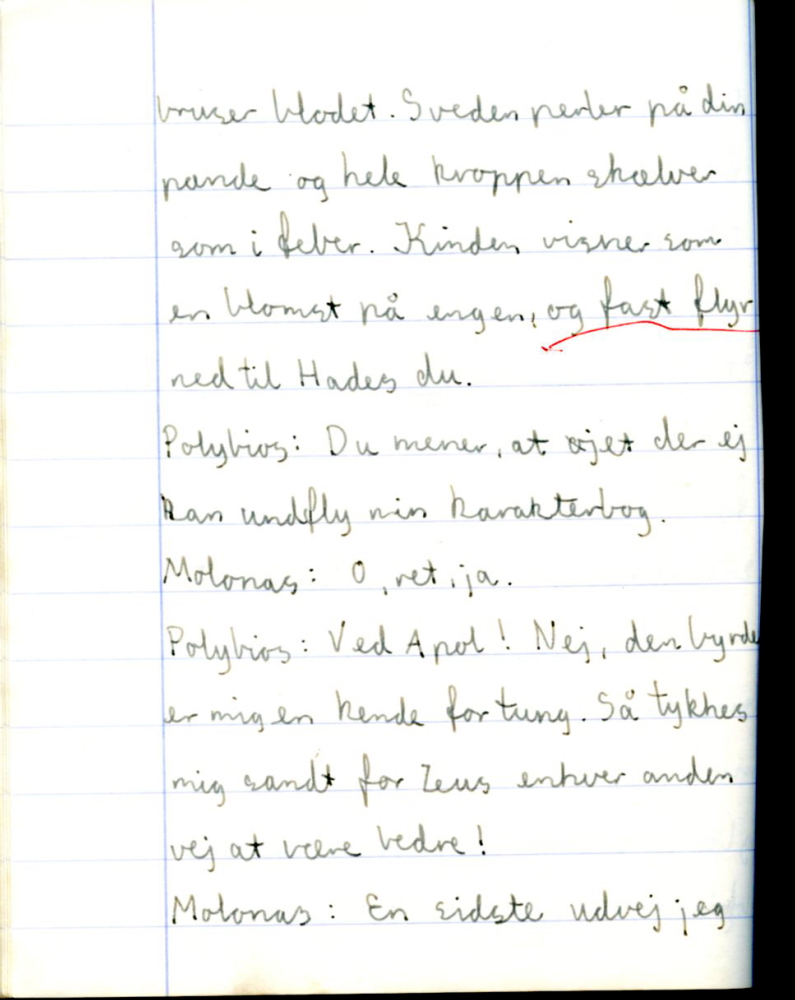 bruser blodet. Sveden perler på din
pande og hele kroppen skælver
som i feber. Kinden visner som
en blomst på engen, og fast flyr
ned til Hades du.
Polybios: Du mener, at øjet der ej
kan undfly min karakterbog.
Molonas: O, ret, ja.
Polybios: Ved Apol! Nej, den byrde
er mig en kende for tung. Så tykkes
mig sandt for Zeus enhver anden
vej at være bedre!
Molonas: En sidste udvej jeg